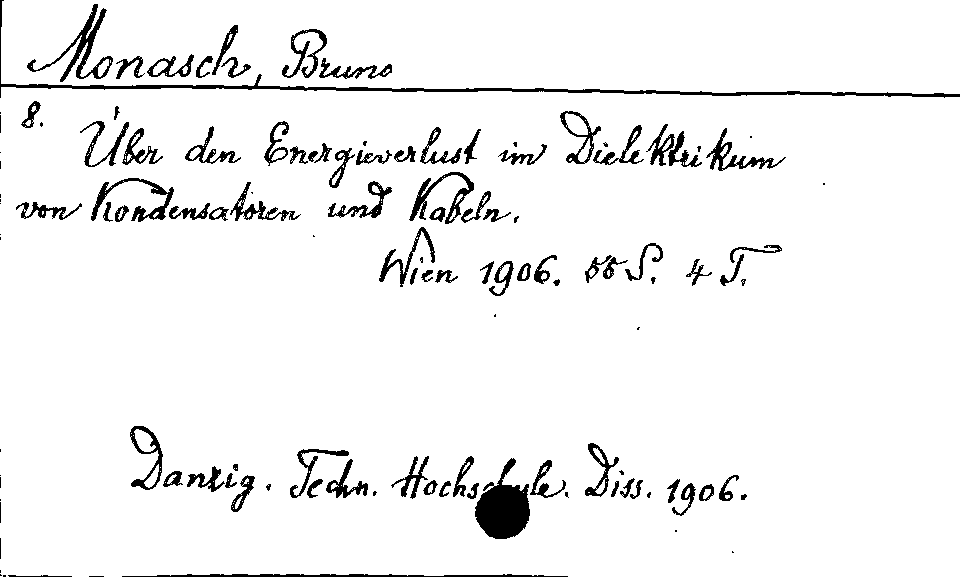 Monasch, Bruno
8.
Über den Energieverlust im Dielektrikum
von Kondensatoren und Kabeln.
Wien 1906. 55 S. 4 T.
Danzig. Techn. Hochschule. Diss. 1906.